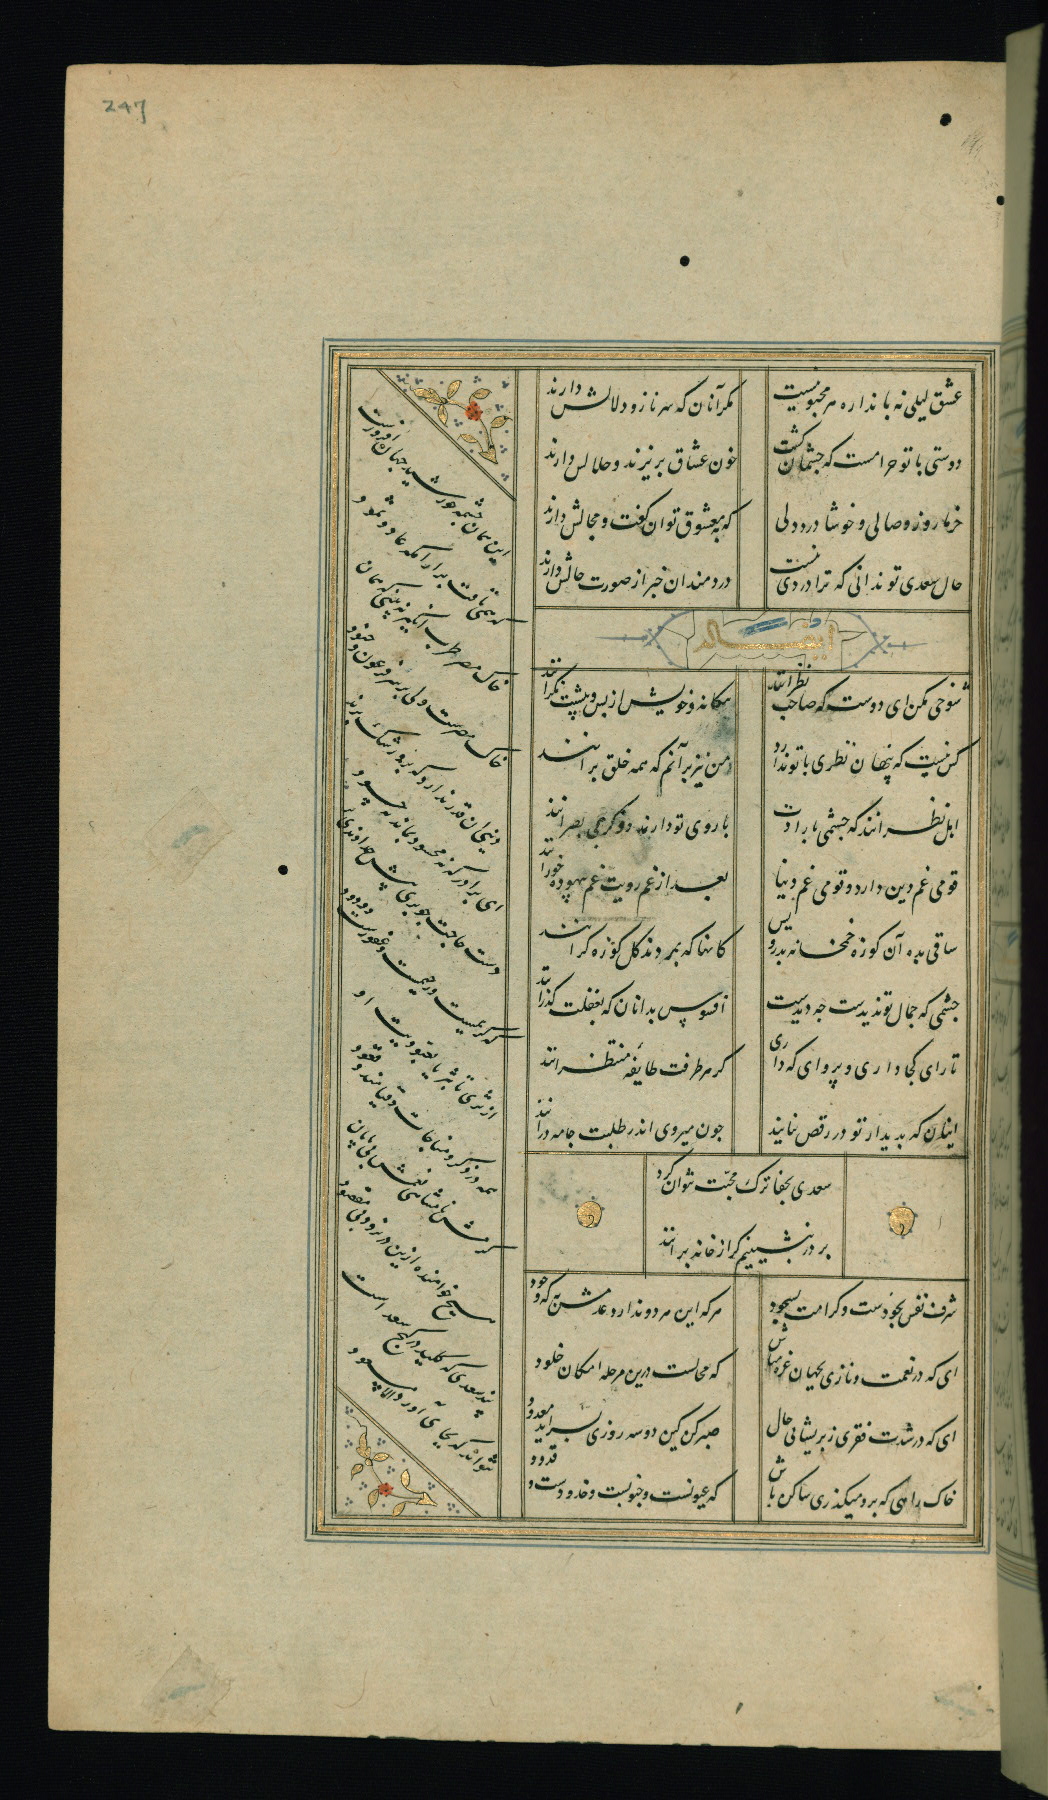 247
عشق لیلی نه باندازه هر مجنونیست
مکر آنان که سر ناز و دلالش دارند
دوستی با تو حرامست که چشمان کشت
خون عشاق بریزند و حلالش دارند
خرما روز وصالی و خوشا درد دلی
که به معشوق توان کفت و مجالش دارند
حال سعدی تو ندانی که ترا دردی نیست
دردمندان خبر از صورت حالش دارند
ایضاً له
شوخی مکن ای دوست که صاحب نظرانند
بیکانه و خویش از پس و پیشت نکرانند
کس نیست که پنهان نظری با تو ندارد
من نیز برآنم که همه خلق برانند
اهل نظرانند که چشمی بارادت
با روی تو دارند و دکر بی بصرانند
قومی غم دین دارد و قومی غم دنیا
بعد از غم رویت غم بیهوده خورانند
ساقی بده آن کوزه خمخانه بدرویش
کانها که بمردند کل کوزه کرانند
چشمی که جمال تو ندیدست چه دیدست
افسوس بدانان که بغفلت کذرانند
تا رای کجا داری و پروای که داری
کز هر طرفت طایفهٔ منتظرانند
اینان که بدیدار تو در رقص نمایند
چون میروی اندر طلبت جامه درانند
سعدی بجفا ترک محبت نتوان کرد
بر در بنشینیم کر از خانه برانند
شرف نفس بجودست و کرامت بسجود
هر که این هر دو ندارد عدمش به که وجود
ای که در نعمت و نازی بجهان غره مباش
که محالست درین مرحله امکان خلود
ای که در شدت فقری و پریشانی حال
صبر کن کین دو سه روزی بسر آید معدود
خاک راهی که برو میکذری ساکن باش
که عیونست و جفونست و خدودست و قدود
این همان چشمه خورشید جهان افروزست
که همی تافت بر آرامکه عاد و ثمود
خاک مصر طرب انکیز نبینی که همان
خاک مصرست ولی بر سر فرعون و جنود
دنیی آن قدر ندارد که برو رشک برند
ای برادر که نه محسود بماند نه حسود
دست حاجت چو بری پیش خداوندی بر
که کریمست و رحیمست و غفورست و ودود
از ثری تا بثریا بعبودیت او
همه در ذکر و مناجات و قیامند و قعود
کرمش نامتناهی نعمش بی پایان
هیچ خواهنده ازین در نرود بی مقصود
پند سعدی که کلید در کنج سعد است
نتواند که بجای آورد الا مسعود